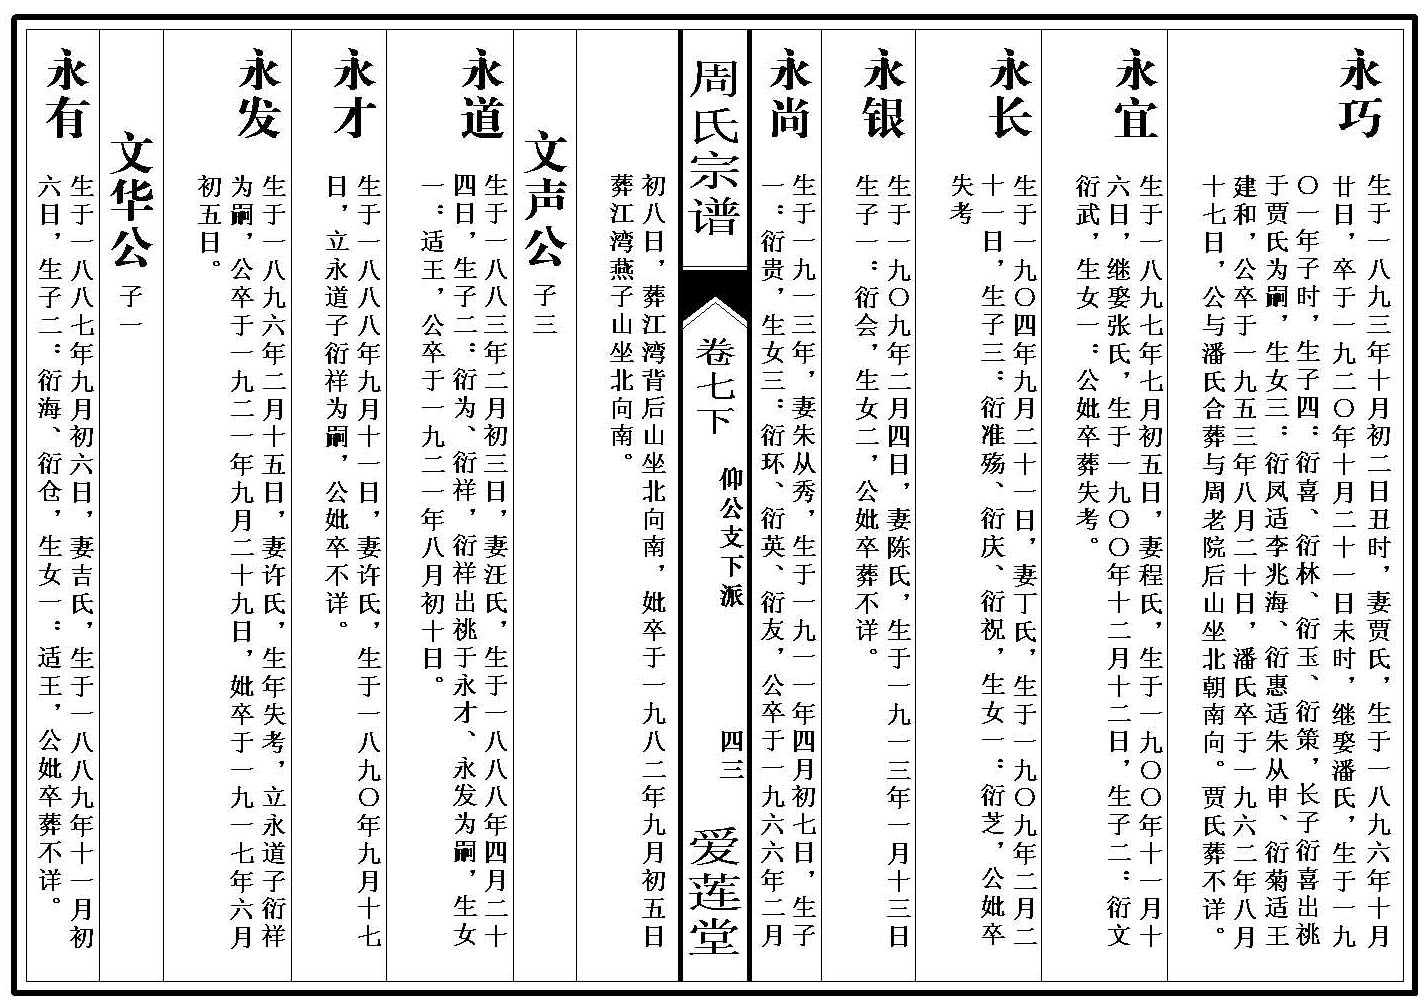 永巧
生于一八九三年十月初二日丑时，妻贾氏，生于一八九六年十月
廿日，卒于一九二〇年十月二十一日未时，继娶潘氏，生于一九
〇一年子时，生子四：衍喜、衍林、衍玉、衍策，长子衍喜出祧
于贾氏为嗣，生女三：衍凤适李兆海、衍惠适朱从申、衍菊适王
建和，公卒于一九五三年八月二十日，潘氏卒于一九六二年八月
十七日，公与潘氏合葬与周老院后山坐北朝南向。贾氏葬不详。
永宜
生于一八九七年七月初五日，妻程氏，生于一九〇〇年十一月十
六日，继娶张氏，生于一九〇〇年十二月十二日，生子二：衍文
衍武，生女一：公妣卒葬失考。
永长
生于一九〇四年九月二十一日，妻丁氏，生于一九〇九年二月二
十一日，生子三：衍准殇、衍庆、衍祝，生女一：衍芝，公妣卒
失考
永银
生于一九〇九年二月四日，妻陈氏，生于一九一三年一月十三日
生子一：衍会，生女二，公妣卒葬不详。
永尚
生于一九一三年，妻朱从秀，生于一九一一年四月初七日，生子
一：衍贵，生女三：衍环、衍英、衍友，公卒于一九六六年二月
周氏宗谱
卷七下
仰公支下派
四三
爱莲堂
初八日，葬江湾背后山坐北向南，妣卒于一九八二年九月初五日
葬江湾燕子山坐北向南。
文声公 子三
永道
生于一八八三年二月初三日，妻汪氏，生于一八八八年四月二十
四日，生子二：衍为、衍祥，衍祥出祧于永才、永发为嗣，生女
一：适王，公卒于一九二一年八月初十日。
永才
生于一八八八年九月十一日，妻许氏，生于一八九〇年九月十七
日，立永道子衍祥为嗣，公妣卒不详。
永发
生于一八九六年二月十五日，妻许氏，生年失考，立永道子衍祥
为嗣，公卒于一九二一年九月二十九日，妣卒于一九一七年六月
初五日。
文华公 子一
永有
生于一八八七年九月初六日，妻吉氏，生于一八八九年十一月初
六日，生子二：衍海、衍仓，生女一：适王，公妣卒葬不详。